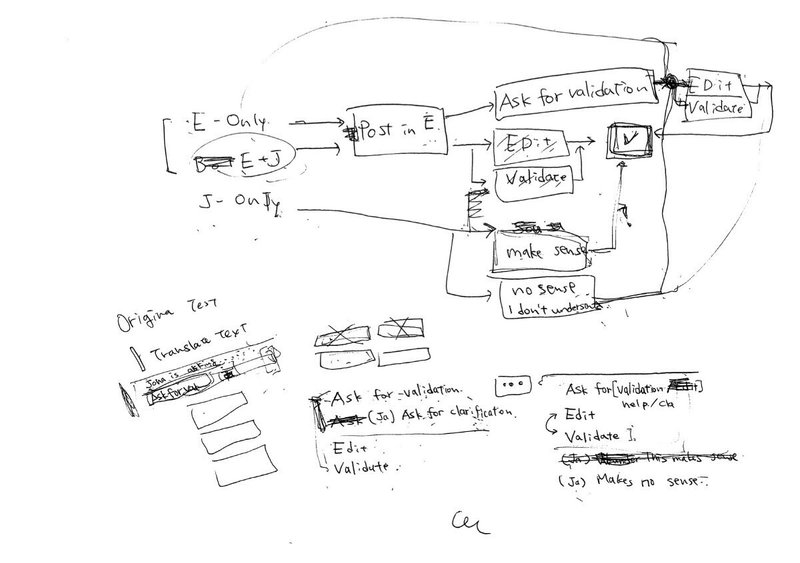 E - Only
E + J
J - Only
Post in E
Ask for validation
EDit
Validate
EDit
Validate
make sense
no sense
I don't understand
Origina Text
Translate Text
John is asking
Ask for val
Ask for validation
(Ja) Ask for clarification
Edit
Validate
Ask for [validation]
help/cla
Edit
Validate
(Ja) This makes sense
(Ja) Makes no sense